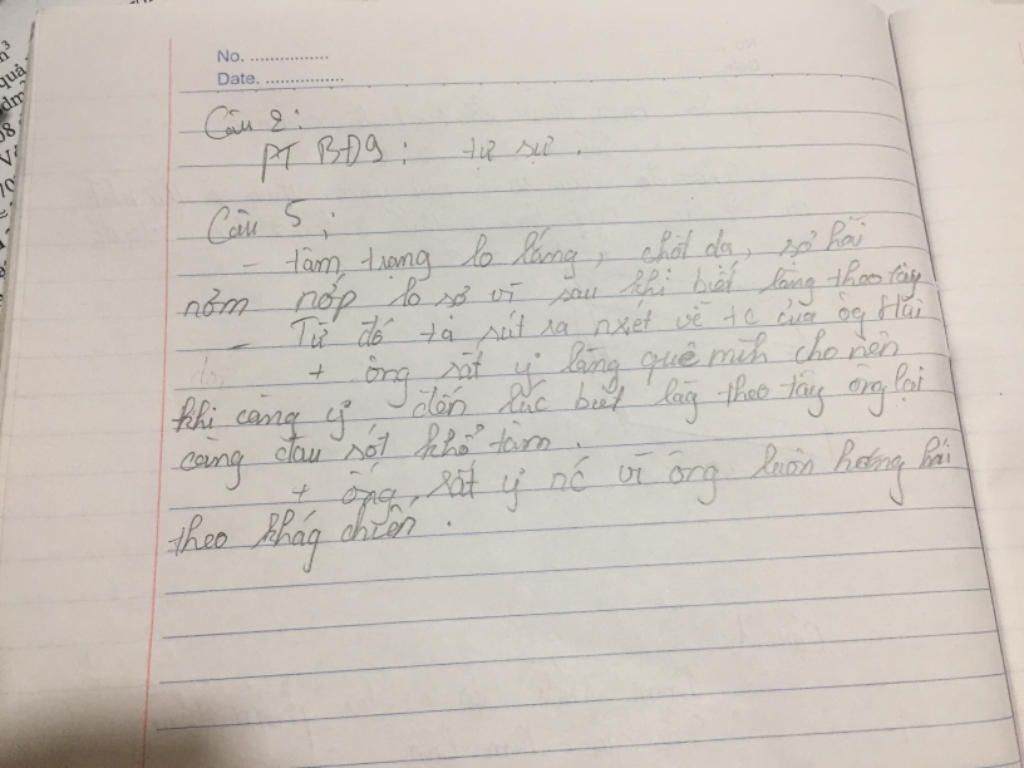 No. ................
Date. ................
Câu 2:
PT BĐ9: tự sự.
Câu 5:
- tâm trạng lo lắng, chột dạ, sợ hãi
nơm nớp lo sợ vì sau khi biết làng theo tây
- Từ đó ta rút ra nxét về tc của ôg Hai
+ ông rất y làng quê mih cho nên
khi càng y đến lúc biết làg theo tây ông lại
càng đau xót khổ tâm.
+ ông rất y nc vì ông luôn hướng
theo khág chiến.
n³
quả
dm
08
70